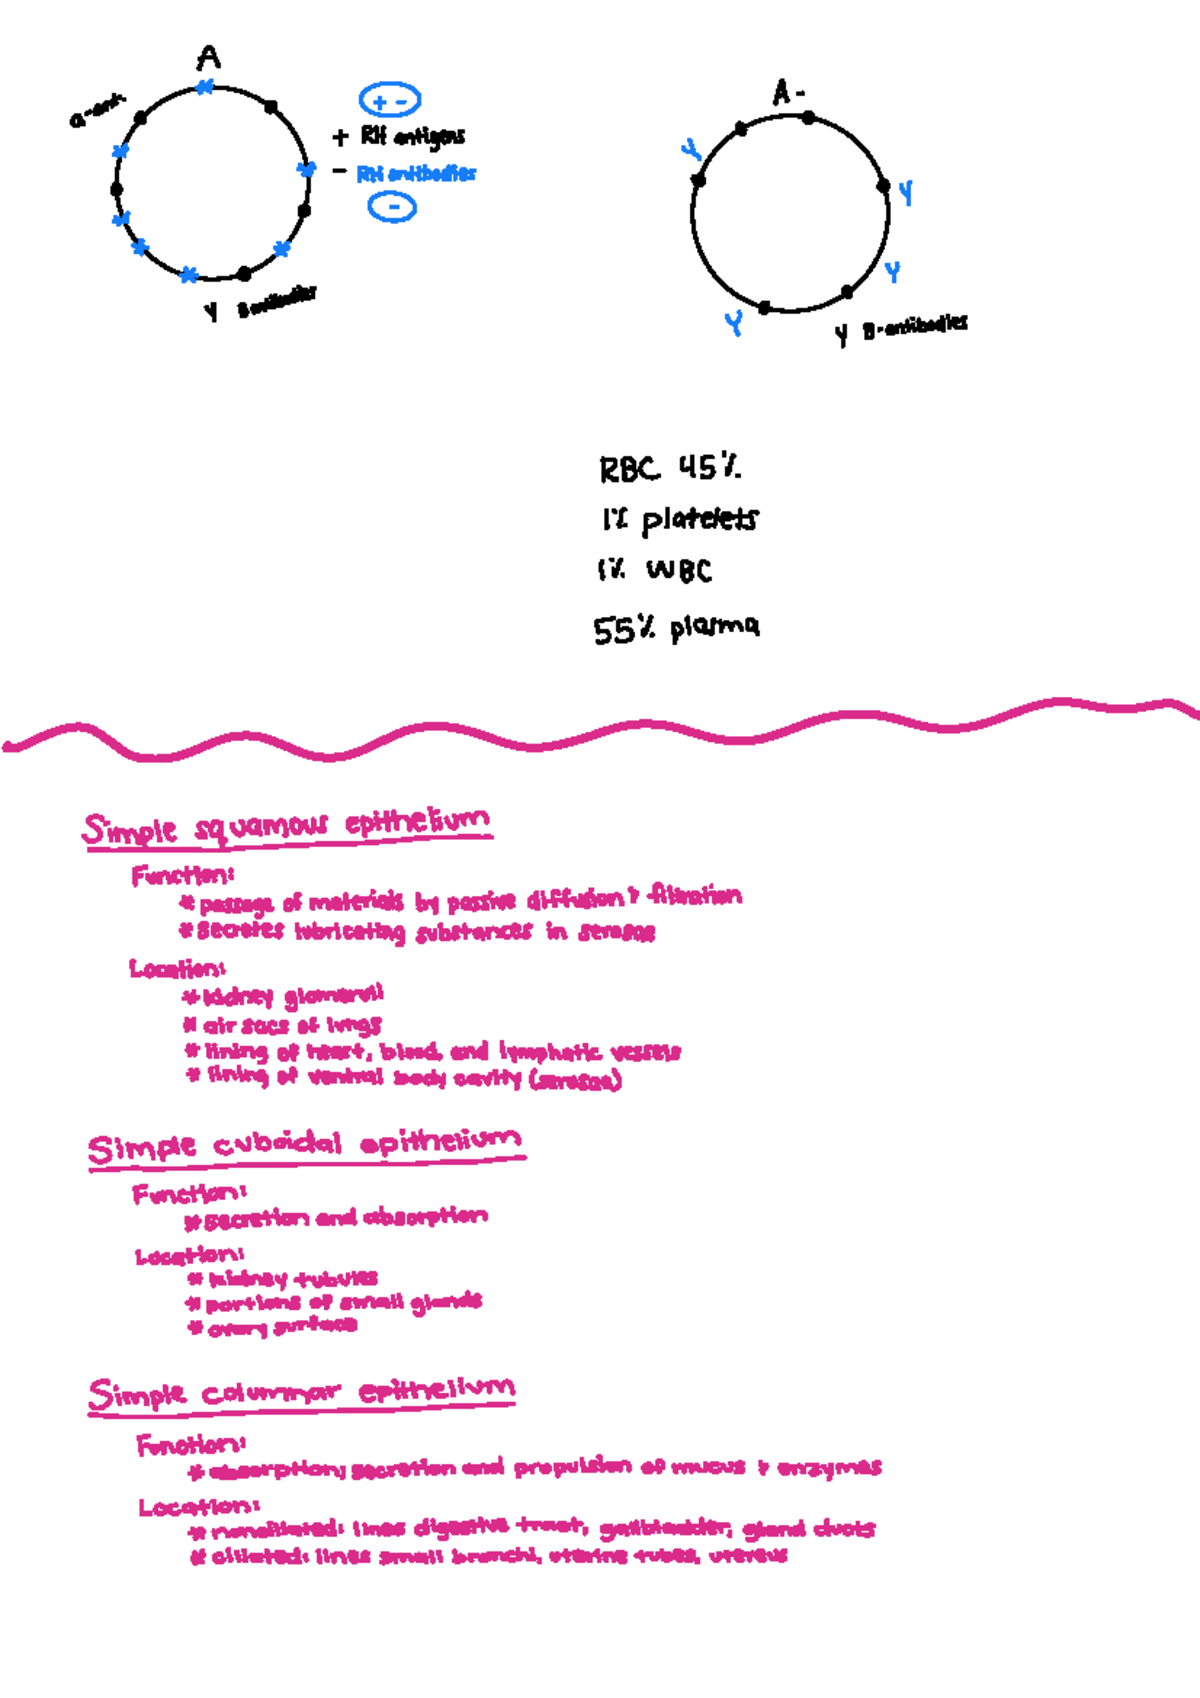 A
a-ant.
+ -
+ RH antigens
- RH antibodies
-
Y B antibodies
A -
Y
Y
Y
Y
Y B-antibodies
RBC 45%
1% platelets
1% WBC
55% plasma
Simple squamous epithelium
Function:
* passage of materials by passive diffusion & filtration
* Secretes lubricating substances in serosae
Location:
* kidney glomeruli
* air sacs of lungs
* lining of heart, blood, and lymphatic vessels
* lining of ventral body cavity (serosae)
Simple cuboidal epithelium
Function:
* secretion and absorption
Location:
* kidney tubules
* portions of small glands
* ovary surface
Simple columnar epithelium
Function:
* absorption; secretion and propulsion of mucus & enzymes
Location:
* nonciliated: lines digestive tract, gallbladder, gland ducts
* ciliated: lines small bronchi, uterine tubes, utereus